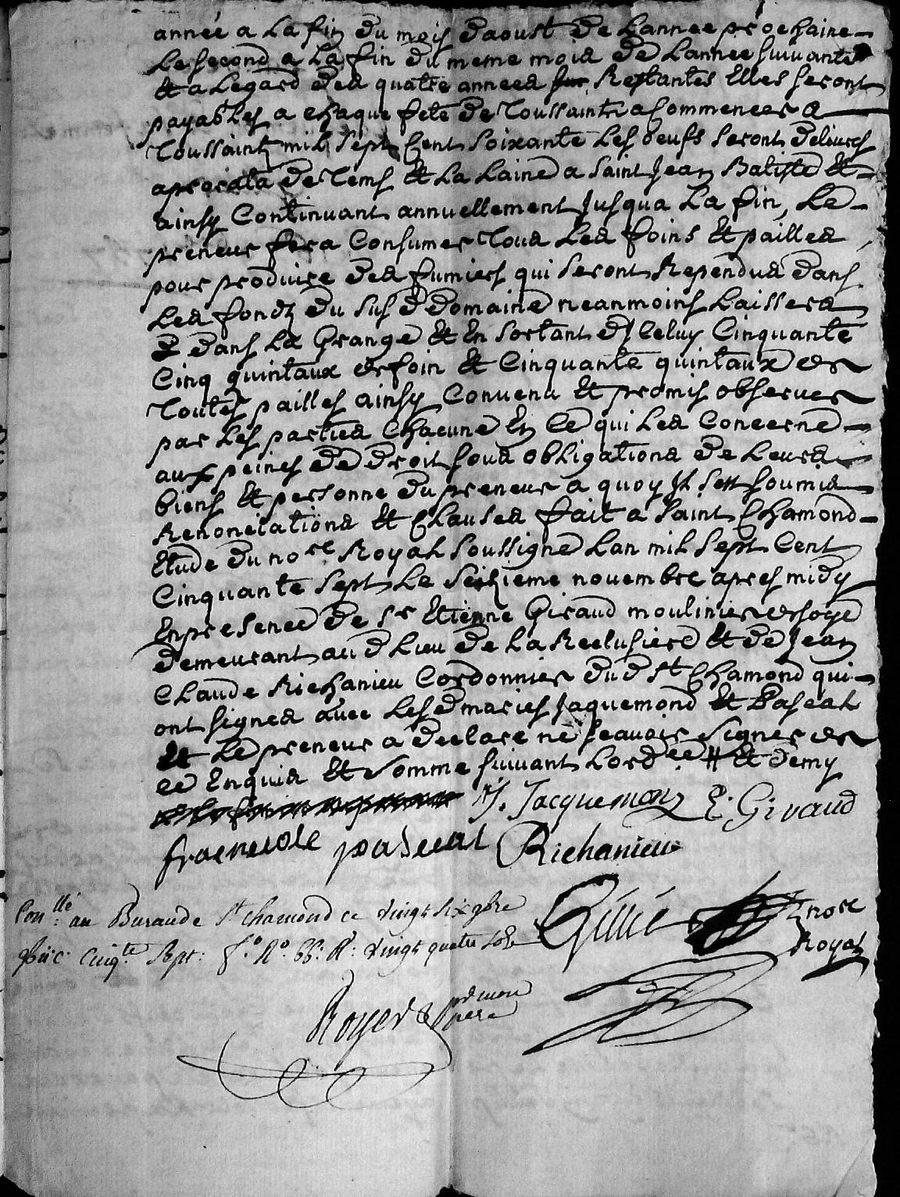 année a La fin du mois daoust de Lannée prochaine
Le second a La fin du meme mois de Lannée suivante
Et a Legard des quatre années Restantes Elles seront
payables a chaque fete de Toussaintz a Commencer a
Toussaintz mil sept Cent soixante Les oeufs seront delivres
aprorata de Tems Et La Laine a saint Jean Batiste Et
ainsy Continuant annuellement Jusqua La fin, Le
preneur fera Consumer Tous Les foins Et pailles
pour produire des fumiers qui seront Rependus dans
Les fondz du sus d domaine neanmoins Laissera
dans La Grange Et En sortant dJceluy Cinquante
Cinq quintaux de foin Et Cinquante quintaux de
Toutes pailles ainsy Convenu Et promis observer
par Les parties Chacune En Ce qui Les Concerne
aux peines de droit sous obligations de Leurs
biens Et personne du preneur a quoy Jl sest soumis
Renonciations Et Clauses fait a saint Chamond
Etude du no.re Royal soussigné Lan mil sept Cent
Cinquante sept Le seizieme novembre apres midy
En presence de sr Etienne Giraud moulinier de soye
demeurant au d Lieu de La Reclusiere Et de Jean
Claude Richanieu Cordonnier du d st Chamond qui
ont signés avec Les d maries Jaquemond Et Pascal
Et Le preneur a declaré ne scavoir signer de
ce Enquis Et sommé suivant Lord.ce # Et demy
J. Jacquemond E. Giraud
pascal Richanieu
Con.llé au Bureau de St chamond ce vingt six gbre
cinq.te sept: f.o R.o 66. R. vingt quatre sols
Gillié no.re
Royal
Royer